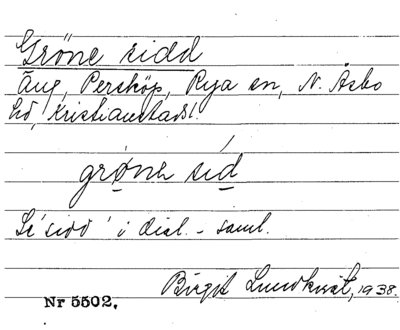 Gröne sidd
Äng, Perstöp, Rya sn, N. Åsbo
hd, Kristianstads l.
grøne sid
Se 'sidd' i dial.-saml.
Birgit Lundkvist, 1938.
Nr 5502.